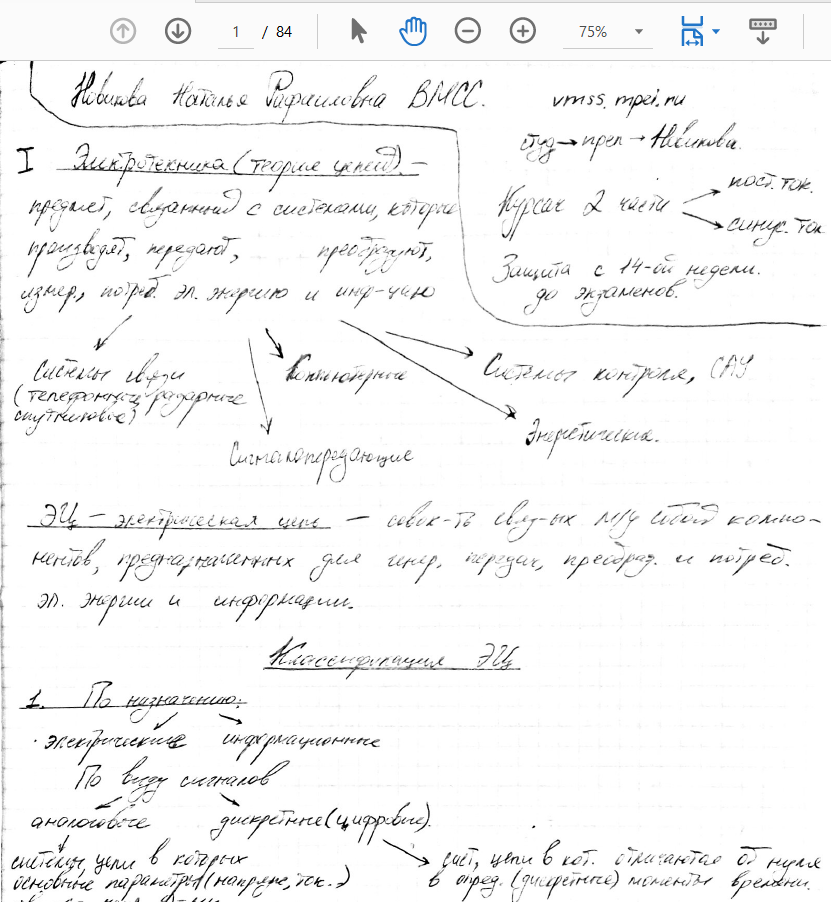 1 / 84 75%
Новикова Наталья Рафаиловна ВМСС.
vmss.mpei.ru
студ → преп → Новикова.
Курсач 2 части
пост. ток.
синус. ток
Защита с 14-ой недели.
до экзаменов.
I Электротехника (теория цепей) –
предмет, связанный с системами, которые
производят, передают, преобразуют,
измер., потреб. эл. энергию и инф-цию
Системы связи
(телефонные, радарные
спутниковые)
Компьютерные
Системы контроля, САУ
Сигналопередающие
Энергетические.
ЭЦ – электрическая цепь – совок-ть связ-ых м/у собой компо-
нентов, предназначенных для генер, передач, преобраз. и потреб.
эл. энергии и информации.
Классификация ЭЦ
1. По назначению:
электрические информационные
По виду сигналов
аналоговые дискретные (цифровые).
системы, цепи в которых
основные параметры (напряже, ток.)
сист, цепи в кот. отличаются от нуля
в опред. (дискретные) моменты времени.